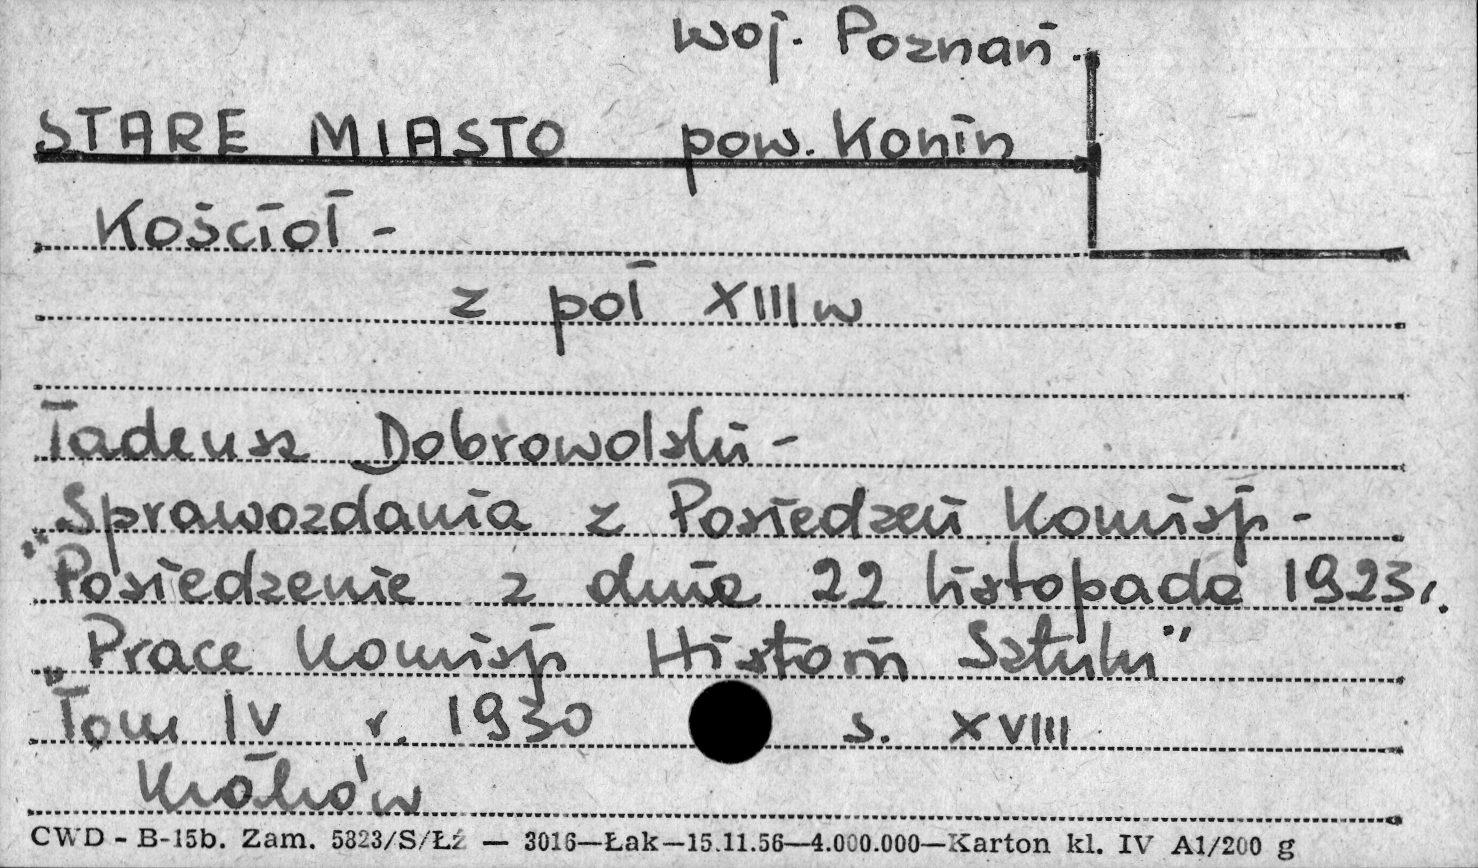 woj. Poznań.
STARE MIASTO pow. Konin
Kościół -
z poł XIII w
Tadeusz Dobrowolski -
Sprawozdania z Posiedzeń Komisji -
"Posiedzenie z dnia 22 listopada 1923r.
"Prace Komisji Historii Sztuki"
Tom IV r. 1930 s. XVIII
Kraków
CWD - B-15b. Zam. 5323/S/Łź — 3016—Łak—15.11.56—4.000.000—Karton kl. IV A1/200 g